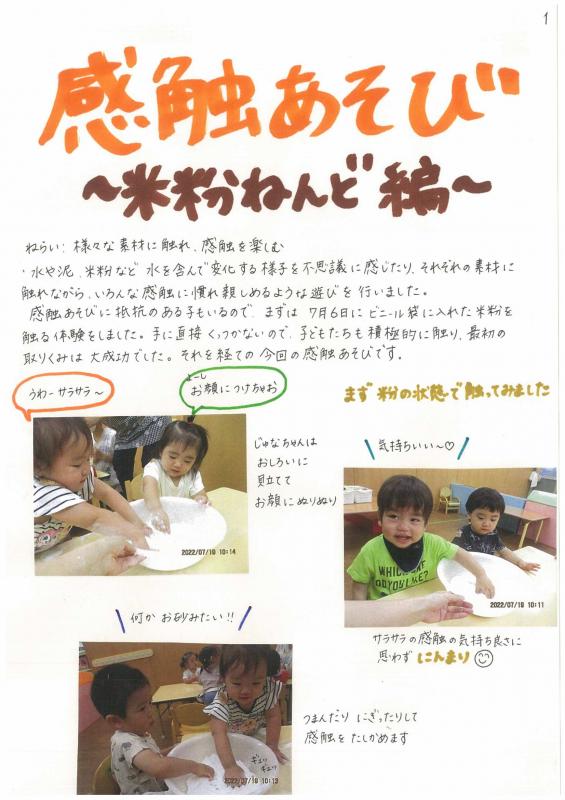 1
感触あそび
～米粉ねんど編～
ねらい：様々な素材に触れ、感触を楽しむ
・水や泥、米粉など 水を含んで変化する様子を不思議に感じたり、それぞれの素材に
触れながら、いろんな感触に慣れ親しめるような遊びを行いました。
感触あそびに抵抗のある子もいるので、まずは 7月6日にビニール袋に入れた米粉を
触る体験をしました。手に直接くっつかないので、子どもたちも積極的に触り、最初の
取りくみは大成功でした。それを経ての今回の感触あそびです。
うわーサラサラ～
よーし
お顔につけちゃお
まず 粉の状態で触ってみました
じゅなちゃんは
おしろいに
見立てて
お顔にぬりぬり
2022/07/19 10:14
気持ちいい～♡
WHICH ONE
DO YOU LIKE?
2022/07/19 10:11
サラサラの感触の気持ち良さに
思わず にんまり
何か お砂みたい!!
ギュッ
ギュッ
2022/07/19 10:13
つまんだり にぎったりして
感触を たしかめます